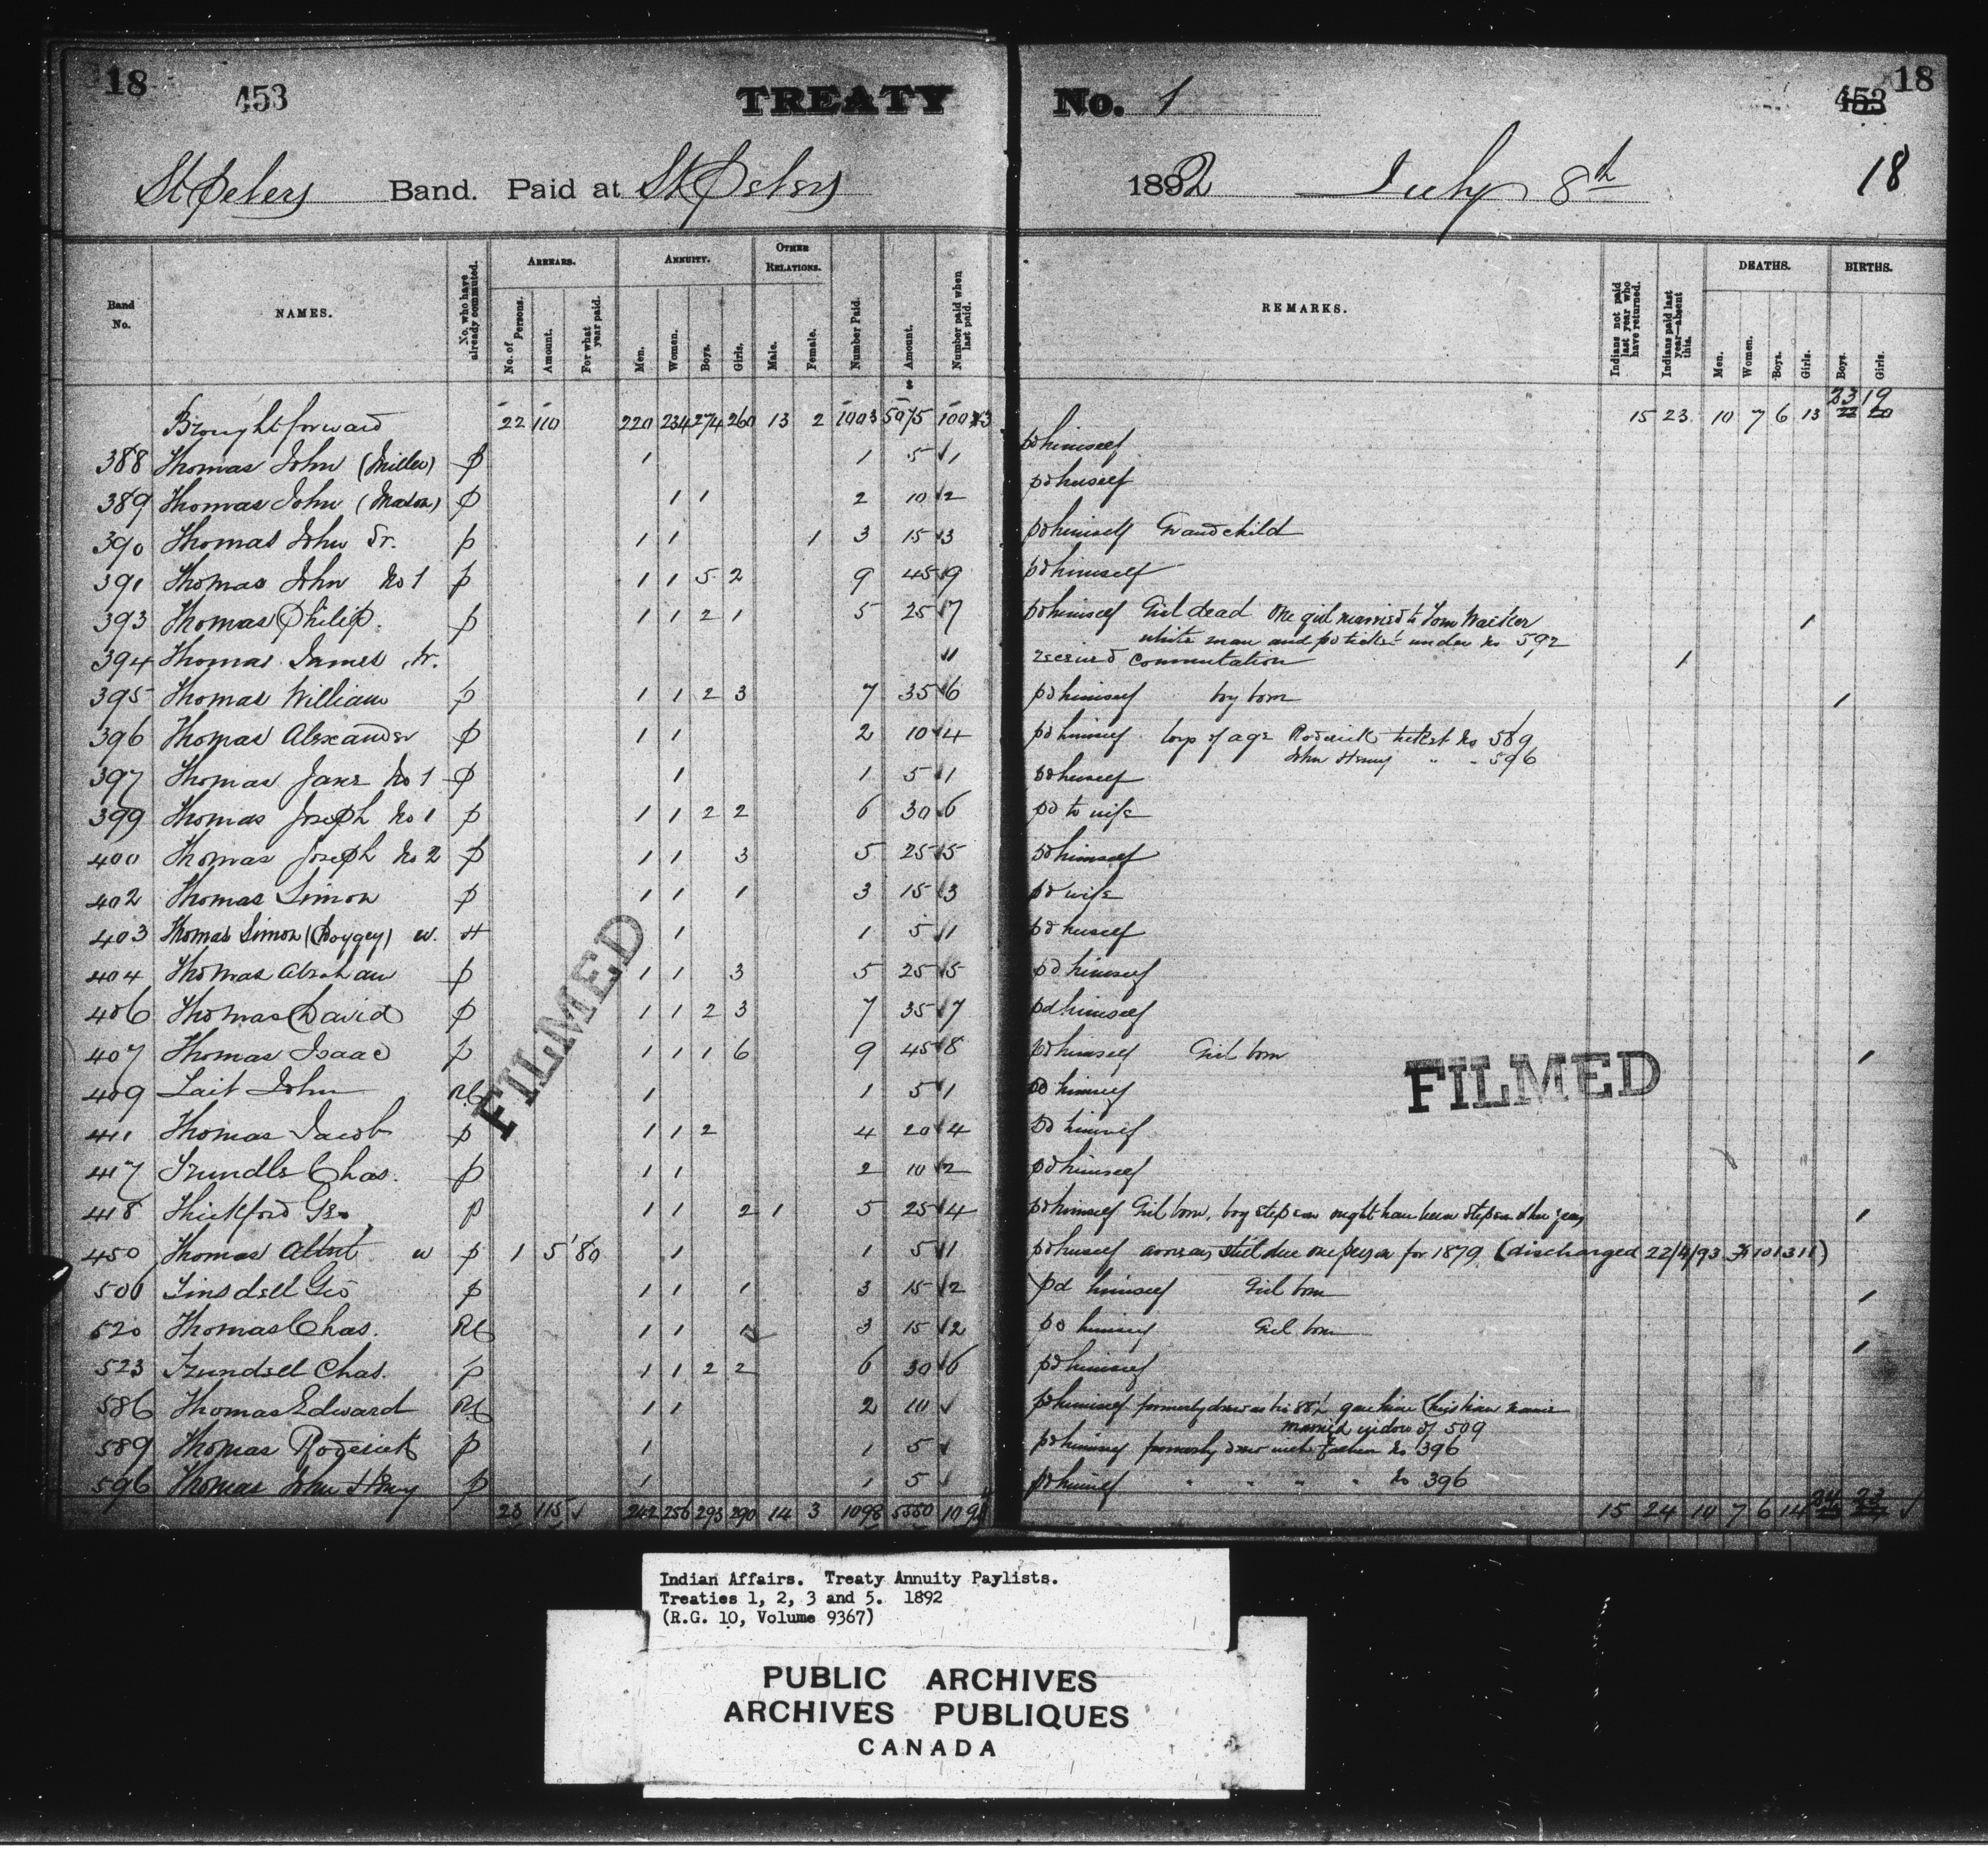 18 453 TREATY No. 1 453 18
St Peters Band. Paid at St Peters 1892 July 8th 18
Band No. NAMES. No. who have already commuted. ARREARS. No. of Persons. Amount. For what year paid. ANNUITY. Men. Women. Boys. Girls. OTHER RELATIONS. Male. Female. Number Paid. Amount. Number paid when last paid. REMARKS. Indians not paid last year who have returned. Indians paid last year—absent this. DEATHS. Men. Women. Boys. Girls. BIRTHS. Boys. Girls.
23 19
Brought forward 22 110 220 234 274 260 13 2 1003 5075 15 23 10 7 6 13 22 20
388 Thomas John (Miller) p 1 1 5 1 pd himself
389 Thomas John (Mason) p 1 1 2 10 2 pd herself
390 Thomas John Sr. p 1 1 1 3 15 3 pd himself Grandchild
391 Thomas John No 1 p 1 1 5 2 9 45 9 pd himself
393 Thomas Philip. p 1 1 2 1 5 25 7 pd himself Girl dead One girl married to Tom 1
white man and pd ticket under No 592
394 Thomas James Jr. 1 received commutation 1
395 Thomas William p 1 1 2 3 7 35 6 pd himself boy born 1
396 Thomas Alexander p 1 1 2 10 4 pd himself boys of age Roderick ticket No 589
John Henry " " 596
397 Thomas Jane No 1 p 1 1 5 1 pd herself
399 Thomas Joseph No 1 p 1 1 2 2 6 30 6 pd to wife
400 Thomas Joseph No 2 p 1 1 3 5 25 5 pd himself
402 Thomas Simon p 1 1 1 3 15 3 pd wife
403 Thomas Simon w. H 1 1 5 1 pd herself
404 Thomas Abraham p 1 1 3 5 25 5 pd himself
406 Thomas David p 1 1 2 3 7 35 7 pd himself
407 Thomas Isaac p 1 1 1 6 9 45 8 pd himself Girl born 1
FILMED
FILMED
409 Tait John RC 1 1 5 1 pd himself
411 Thomas Jacob p 1 1 2 4 20 4 pd himself
417 Trundle Chas. p 1 1 2 10 2 pd himself
418 Thickford Geo p 1 1 2 1 5 25 4 pd himself Girl born, boy stepson 1
450 Thomas Albert w p 1 5 '80 1 1 5 1 pd herself arrears still due one person for 1879 (discharged 22/4/93 101311)
501 Tinsdell Geo p 1 1 1 3 15 2 pd himself Girl born 1
520 Thomas Chas. RC 1 1 1 3 15 2 pd himself Girl born 1
523 Trundell Chas. p 1 1 2 2 6 30 6 pd himself
586 Thomas Edward RC 1 1 2 10 pd himself formerly drew as No gave him Christian name
married widow of 509
589 Thomas Roderick p 1 1 5 pd himself formerly drew with father No 396
596 Thomas John Henry p 1 1 5 pd himself " " " " No 396
23 115 242 256 293 290 14 3 1098 5550 15 24 10 7 6 14
Indian Affairs. Treaty Annuity Paylists.
Treaties 1, 2, 3 and 5. 1892
(R.G. 10, Volume 9367)
PUBLIC ARCHIVES
ARCHIVES PUBLIQUES
CANADA